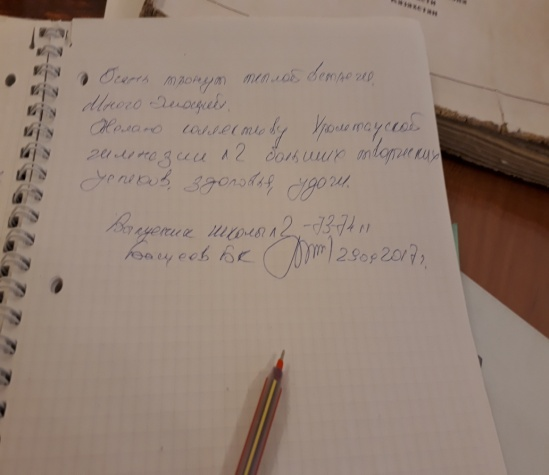 КАЗАХСТАН
Очень тронут теплой встречей.
Много эмоций.
Желаю коллективу
гимназии №2 больших творческих
успехов, здоровья, удачи.
Выпускник школы №2 -73-74 гг
БК 29.04.2017 г.